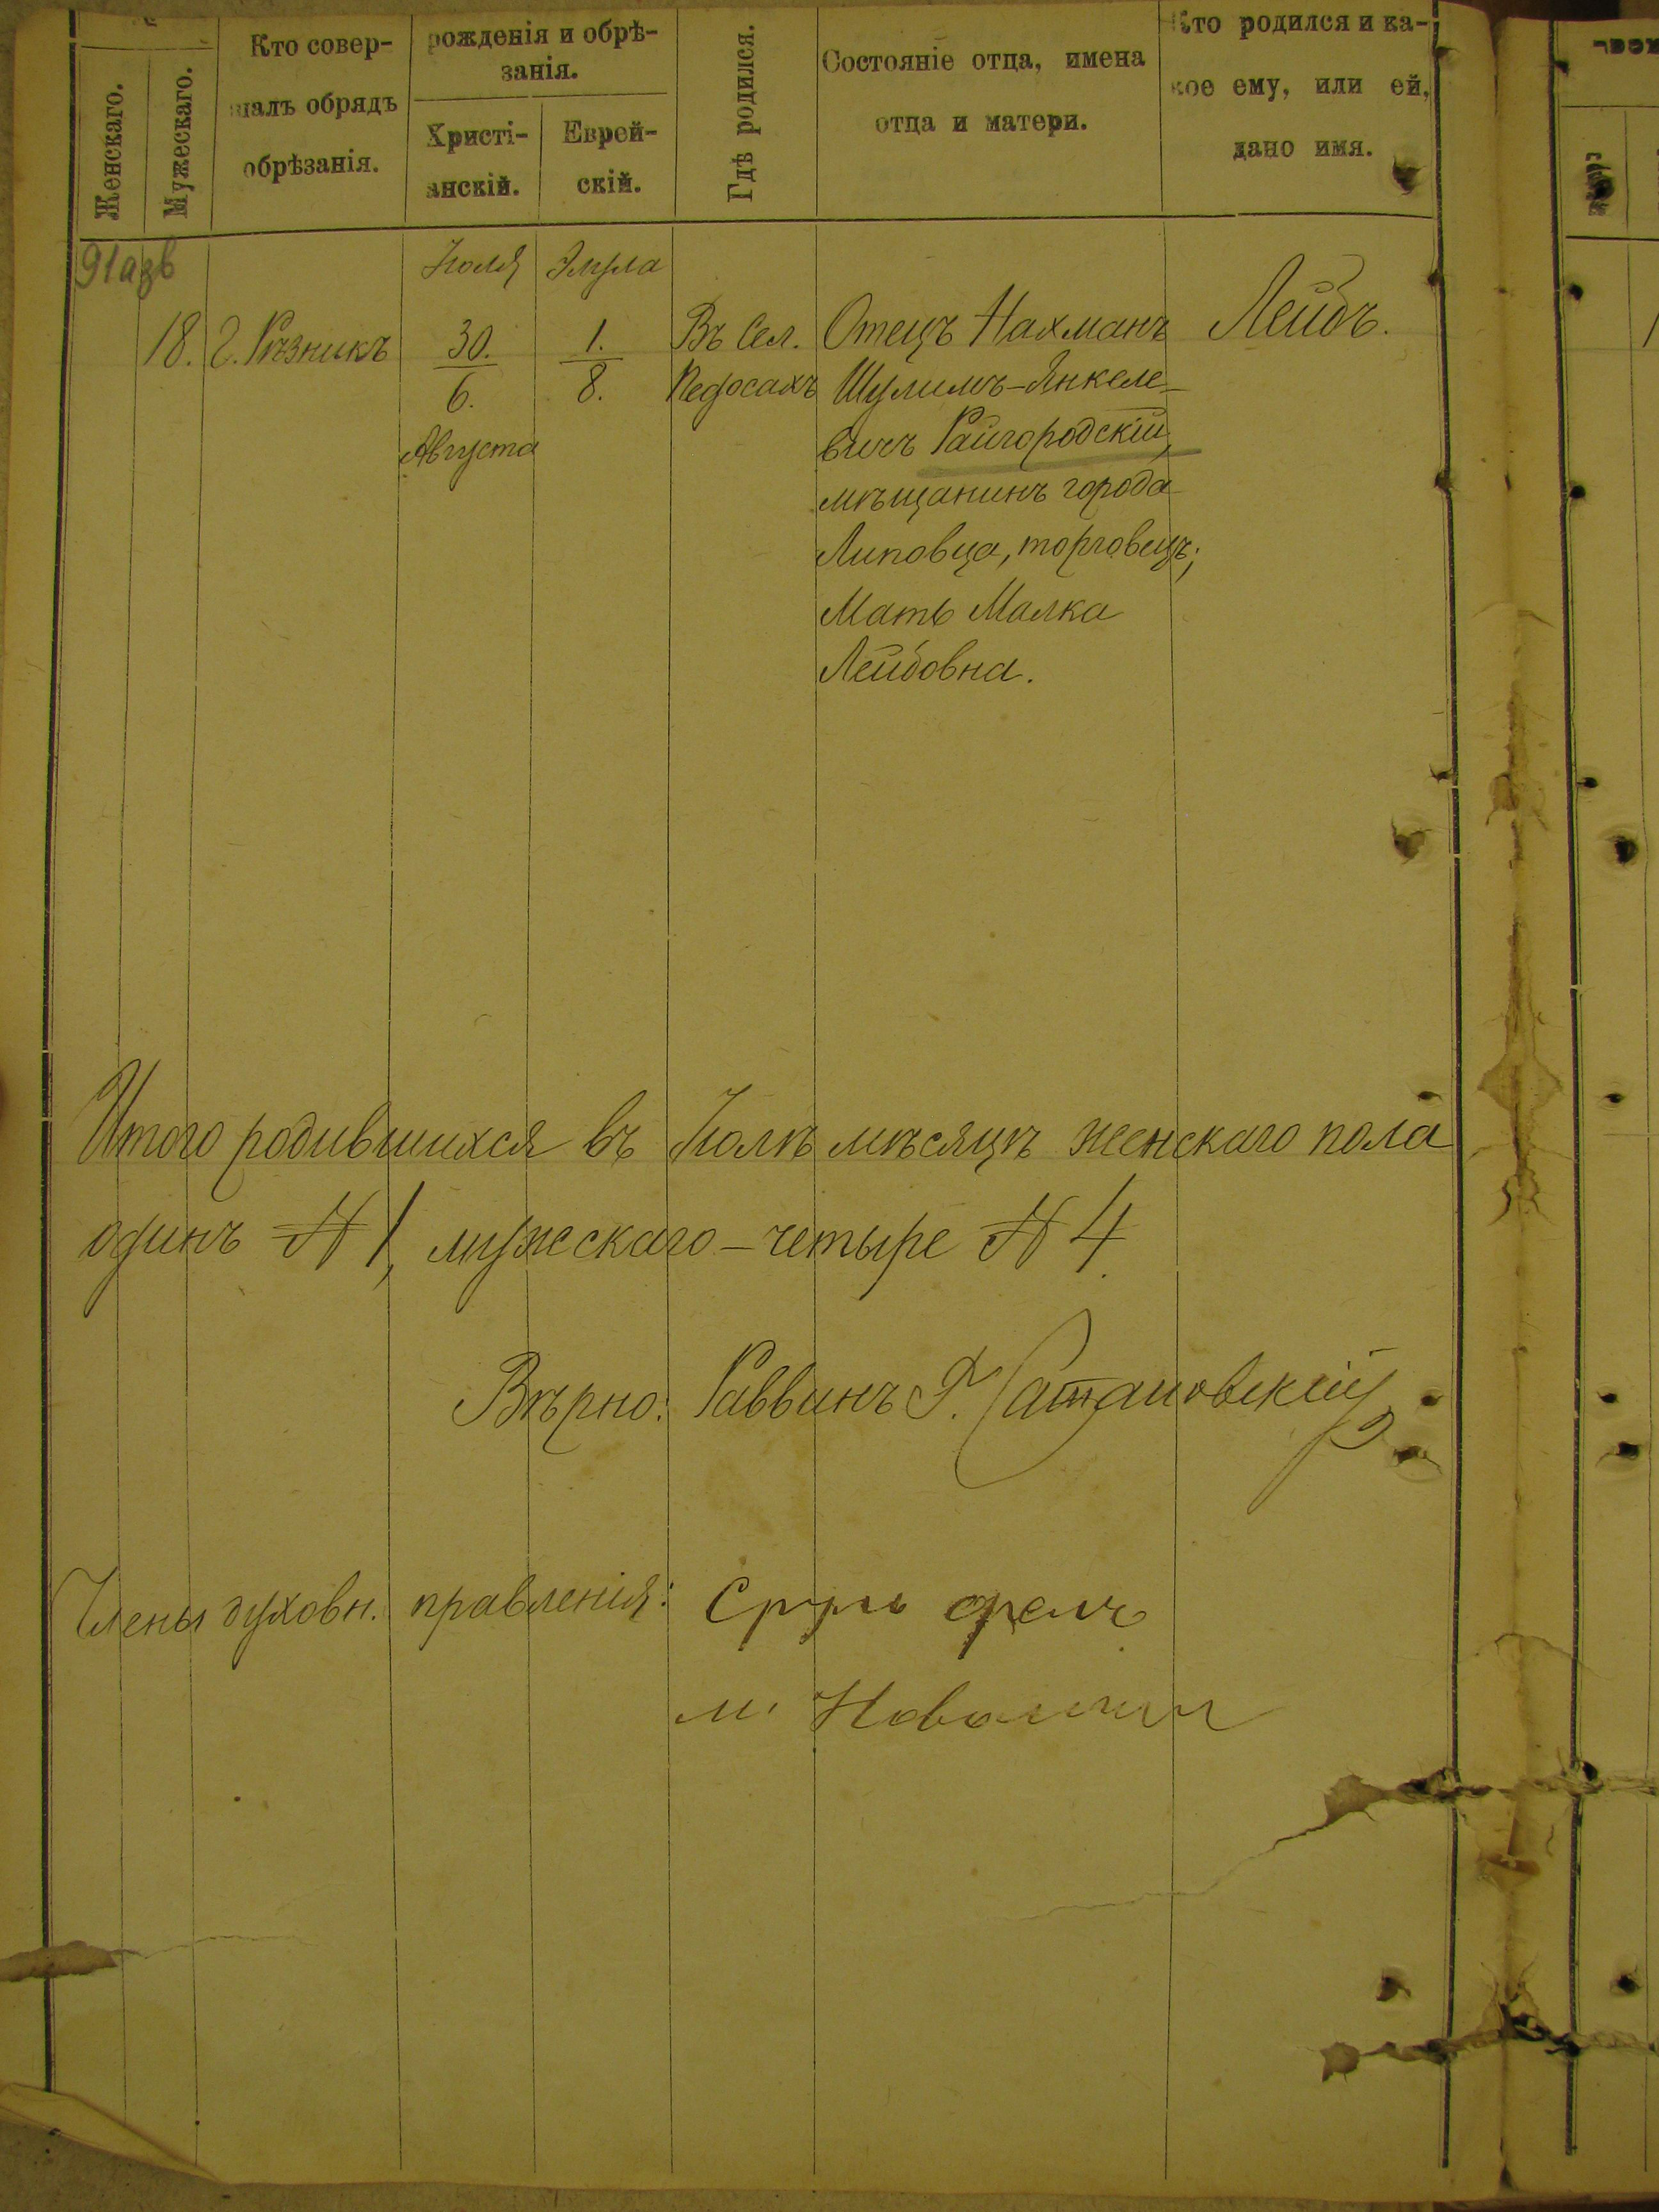 Женскаго.
Мужескаго.
Кто совер-
шалъ обрядъ
обрѣзанія.
рожденія и обрѣ-
занія.
Христі-
анскій.
Еврей-
скій.
Гдѣ родился.
Состояніе отца, имена
отца и матери.
Кто родился и ка-
кое ему, или ей,
дано имя.
Іюля Элула
18. Г. Рѣзникъ 30. 1. Въ Сел. Отецъ Нахманъ Лейбъ.
6. 8. Шулимъ-Янкеле-
Августа вичъ Райгородскій,
мѣщанинъ города
Липовца, торговецъ;
Мать Малка
Лейбовна.
Итого родившихся въ Іюлѣ мѣсяцѣ женскаго пола
одинъ № 1, мужескаго – четыре № 4.
Вѣрно: Раввинъ Сатановскій
Члены духовн. правленія: Сруль
м.